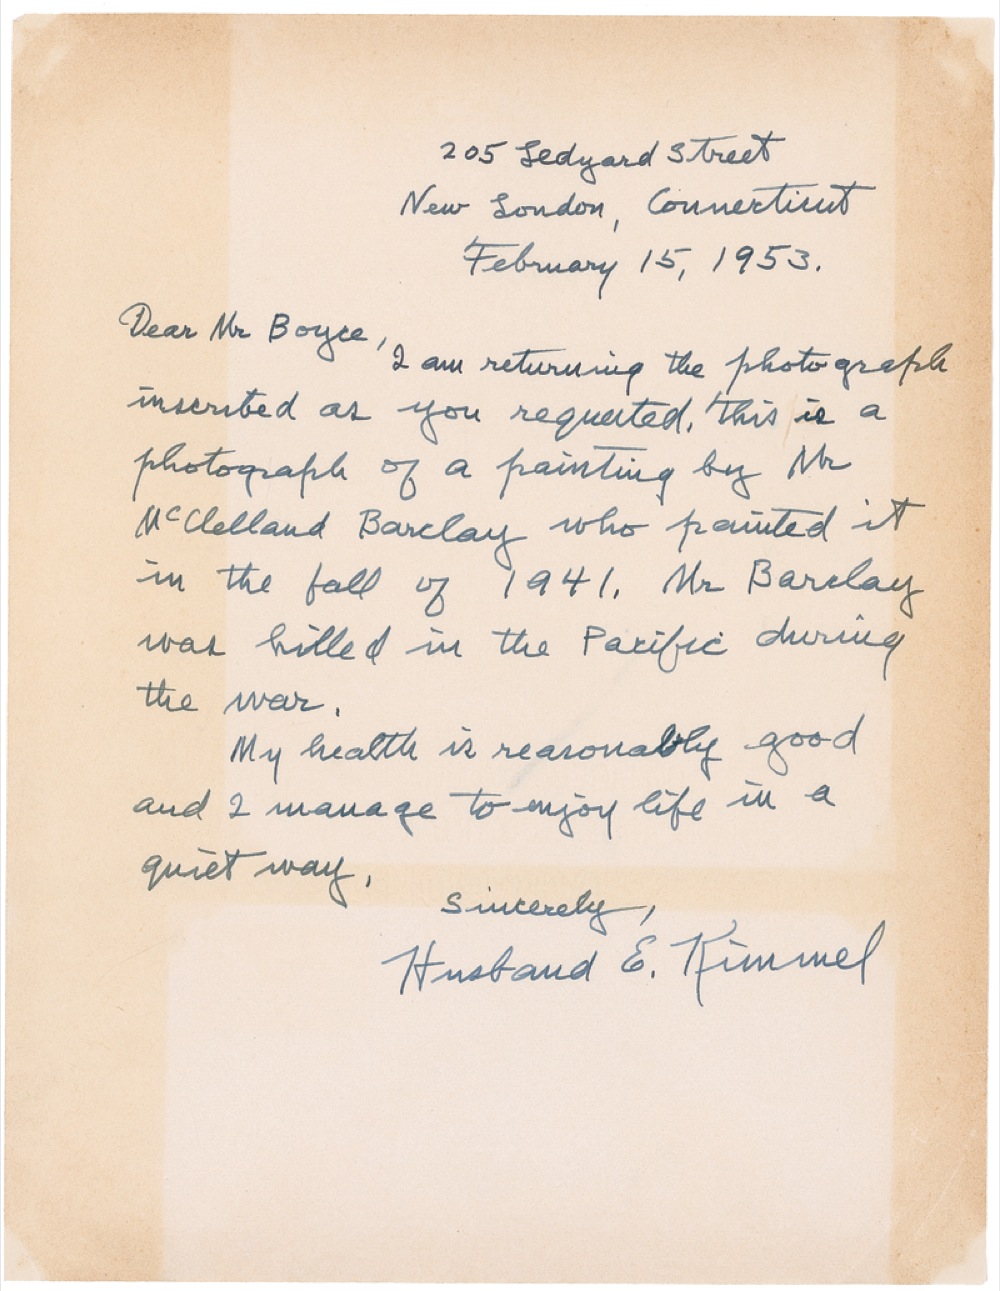 205 Ledyard Street
New London, Connecticut
February 15, 1953.
Dear Mr Boyce,
I am returning the photograph
inscribed as you requested. This is a
photograph of a painting by Mr
McClelland Barclay who painted it
in the fall of 1941. Mr Barclay
was killed in the Pacific during
the war.
My health is reasonably good
and I manage to enjoy life in a
quiet way.
Sincerely,
Husband E. Kimmel